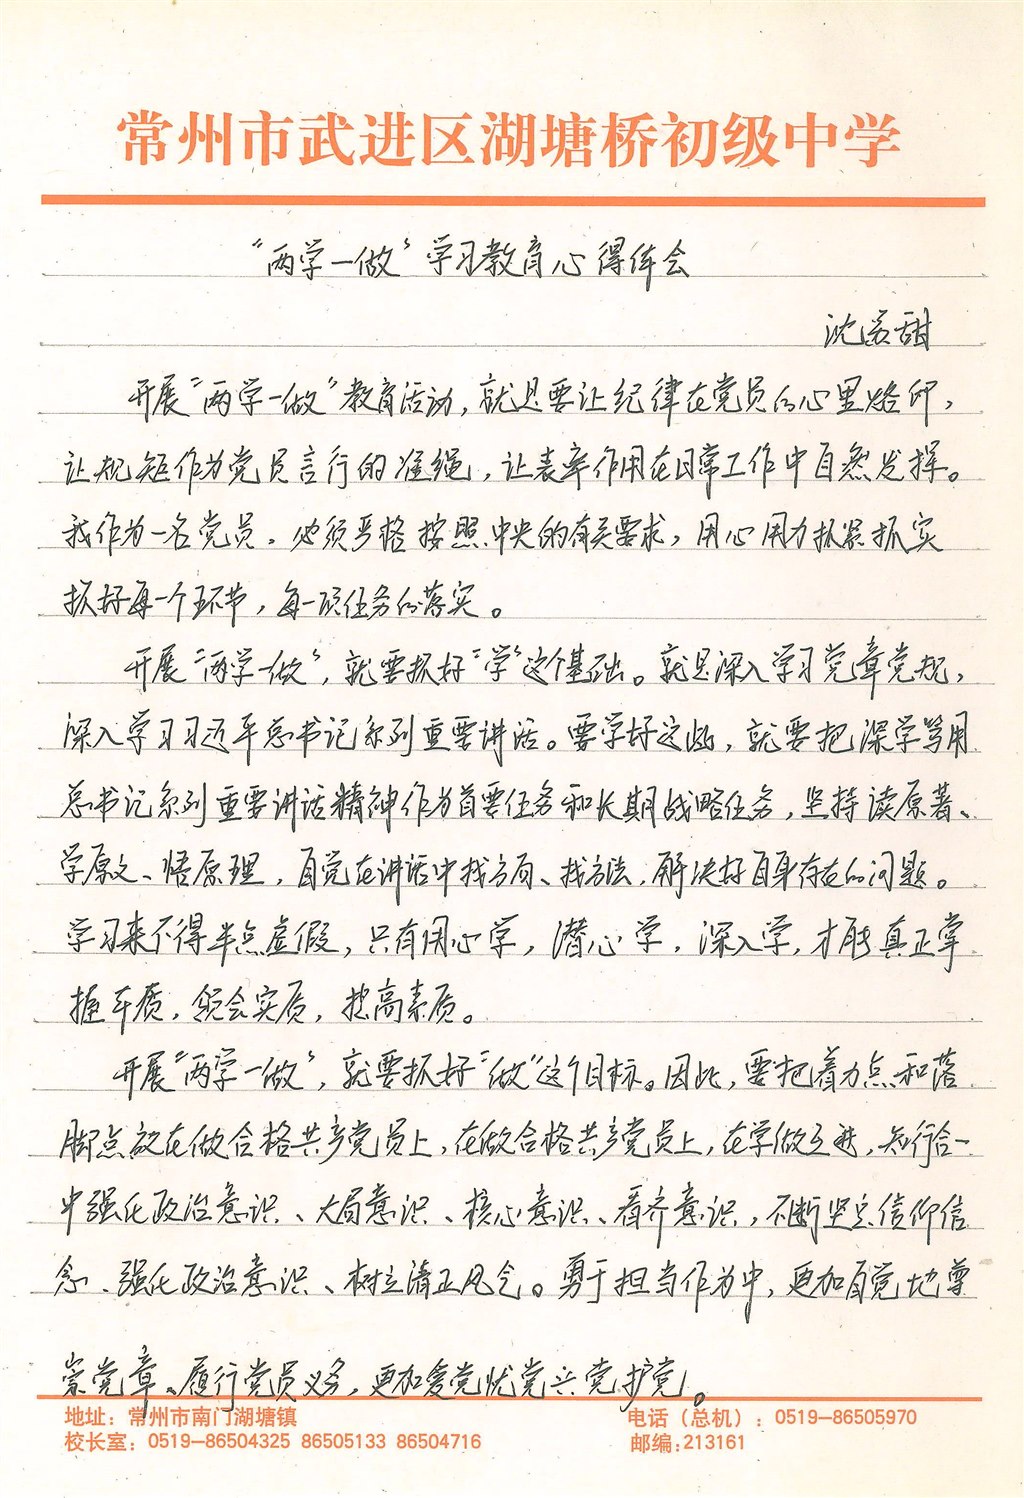 常州市武进区湖塘桥初级中学
“两学一做”学习教育心得体会
沈苏甜
开展“两学一做”教育活动，就是要让纪律在党员的心里烙印，
让规矩作为党员言行的准绳，让表率作用在日常工作中自然发挥。
我作为一名党员，必须严格按照中央的有关要求，用心用力抓紧抓实
抓好每一个环节，每一项任务的落实。
开展“两学一做”，就要抓好“学”这个基础。就是深入学习党章党规，
深入学习习近平总书记系列重要讲话。要学好这些，就要把深学笃用
总书记系列重要讲话精神作为首要任务和长期战略任务，坚持读原著、
学原文、悟原理，自觉在讲话中找方向、找方法，解决好自身存在的问题。
学习来不得半点虚假，只有用心学，潜心学，深入学，才能真正掌
握本质，领会实质，提高素质。
开展“两学一做”，就要抓好“做”这个目标。因此，要把着力点和落
脚点放在做合格共产党员上，在做合格共产党员上，在学做互进，知行合一
中强化政治意识、大局意识、核心意识、看齐意识，不断坚定信仰信
念、强化政治意识、树立清正风气。勇于担当作为中，更加自觉地尊
崇党章、履行党员义务，更加爱党忧党兴党护党。
地址：常州市南门湖塘镇 电话（总机）：0519—86505970
校长室：0519—86504325 86505133 86504716 邮编:213161